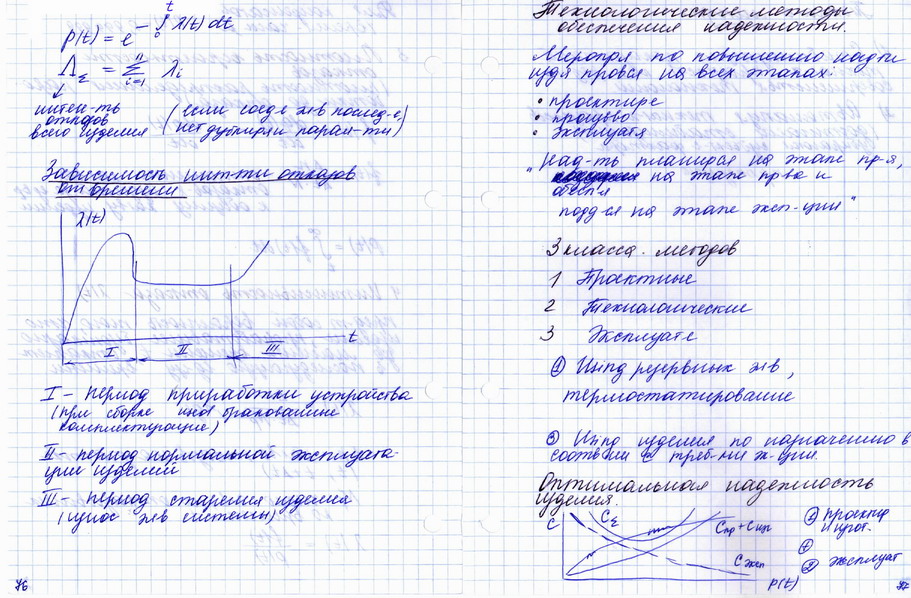 p(t) = e^{-∫₀ᵗ λ(t) dt}
Λ_Σ = Σ_{i=1}^{n} λ_i
интен-ть
отказов
всего изделия
(если соед эл-в послед-е,
нет дублир-я парам-ти)
Зависимость инт-ти отказов
от времени
λ(t)
t
I II III
I – период приработки устройства
(при сборке
комплектующие)
II – период нормальной эксплуата-
ции изделий
III – период старения изделия
(износ эл-в системы)
76
Технологические методы
обеспечения надежности.
Меропр по повышению над-ти
изд-я провод-ся на всех этапах:
• проектир-е
• произ-во
• эксплуат-я
"Над-ть планир-ся на этапе пр-я,
на этапе пр-ва и
обесп-я
подд-ся на этапе эксп-ции"
3 класса методов
1 Проектные
2 Технологические
3 Эксплуат-е
① Исп-е резервных эл-в,
термостатирование
③ Исп-е изделия по назначению в
соотв-ии с треб-ми эк-ции.
Оптимальная надежность
изделия.
C
C_Σ
C_пр + C_изг
C_эксп
p(t)
① проектир
и изгот.
+
② эксплуат
77